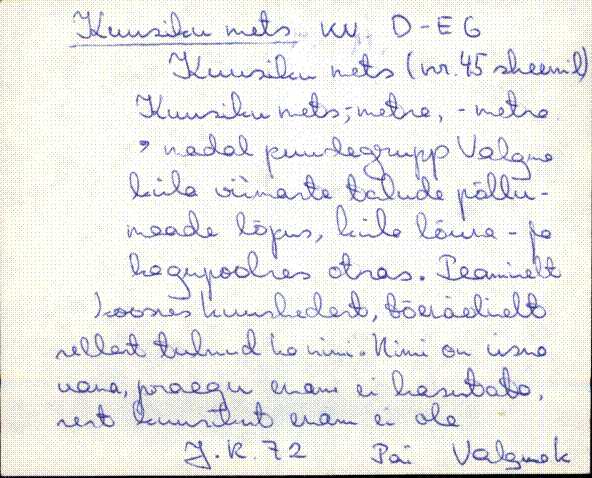 Kuusiku mets KN. D-E6
Kuusiku mets (nr. 45 skeemil)
Kuusiku mets, -metsa, -metsa
puudegrupp Valgma
küla viimaste talude põllu-
maade lõpus, küla lõuna- ja
kagupoolses otsas. Peamiselt
koosnes kuuskedest, tõenäoliselt
sellest tulnud ka nimi. Nimi on üsna
vana, praegu enam ei kasutata,
sest kuusikut enam ei ole
J. K. 72 Pai Valgmak